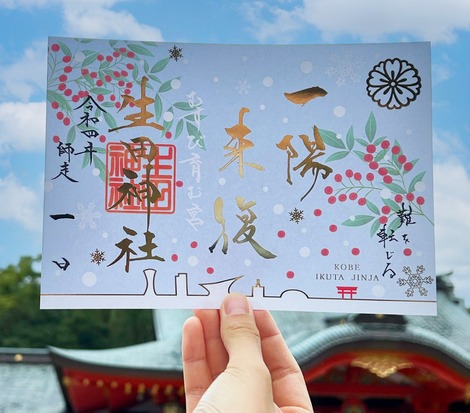 難を
転じる
一陽
来復
むすび育む宮
生田神社
生田
神社
令和四年
師走
一日
KOBE
IKUTA JINJA